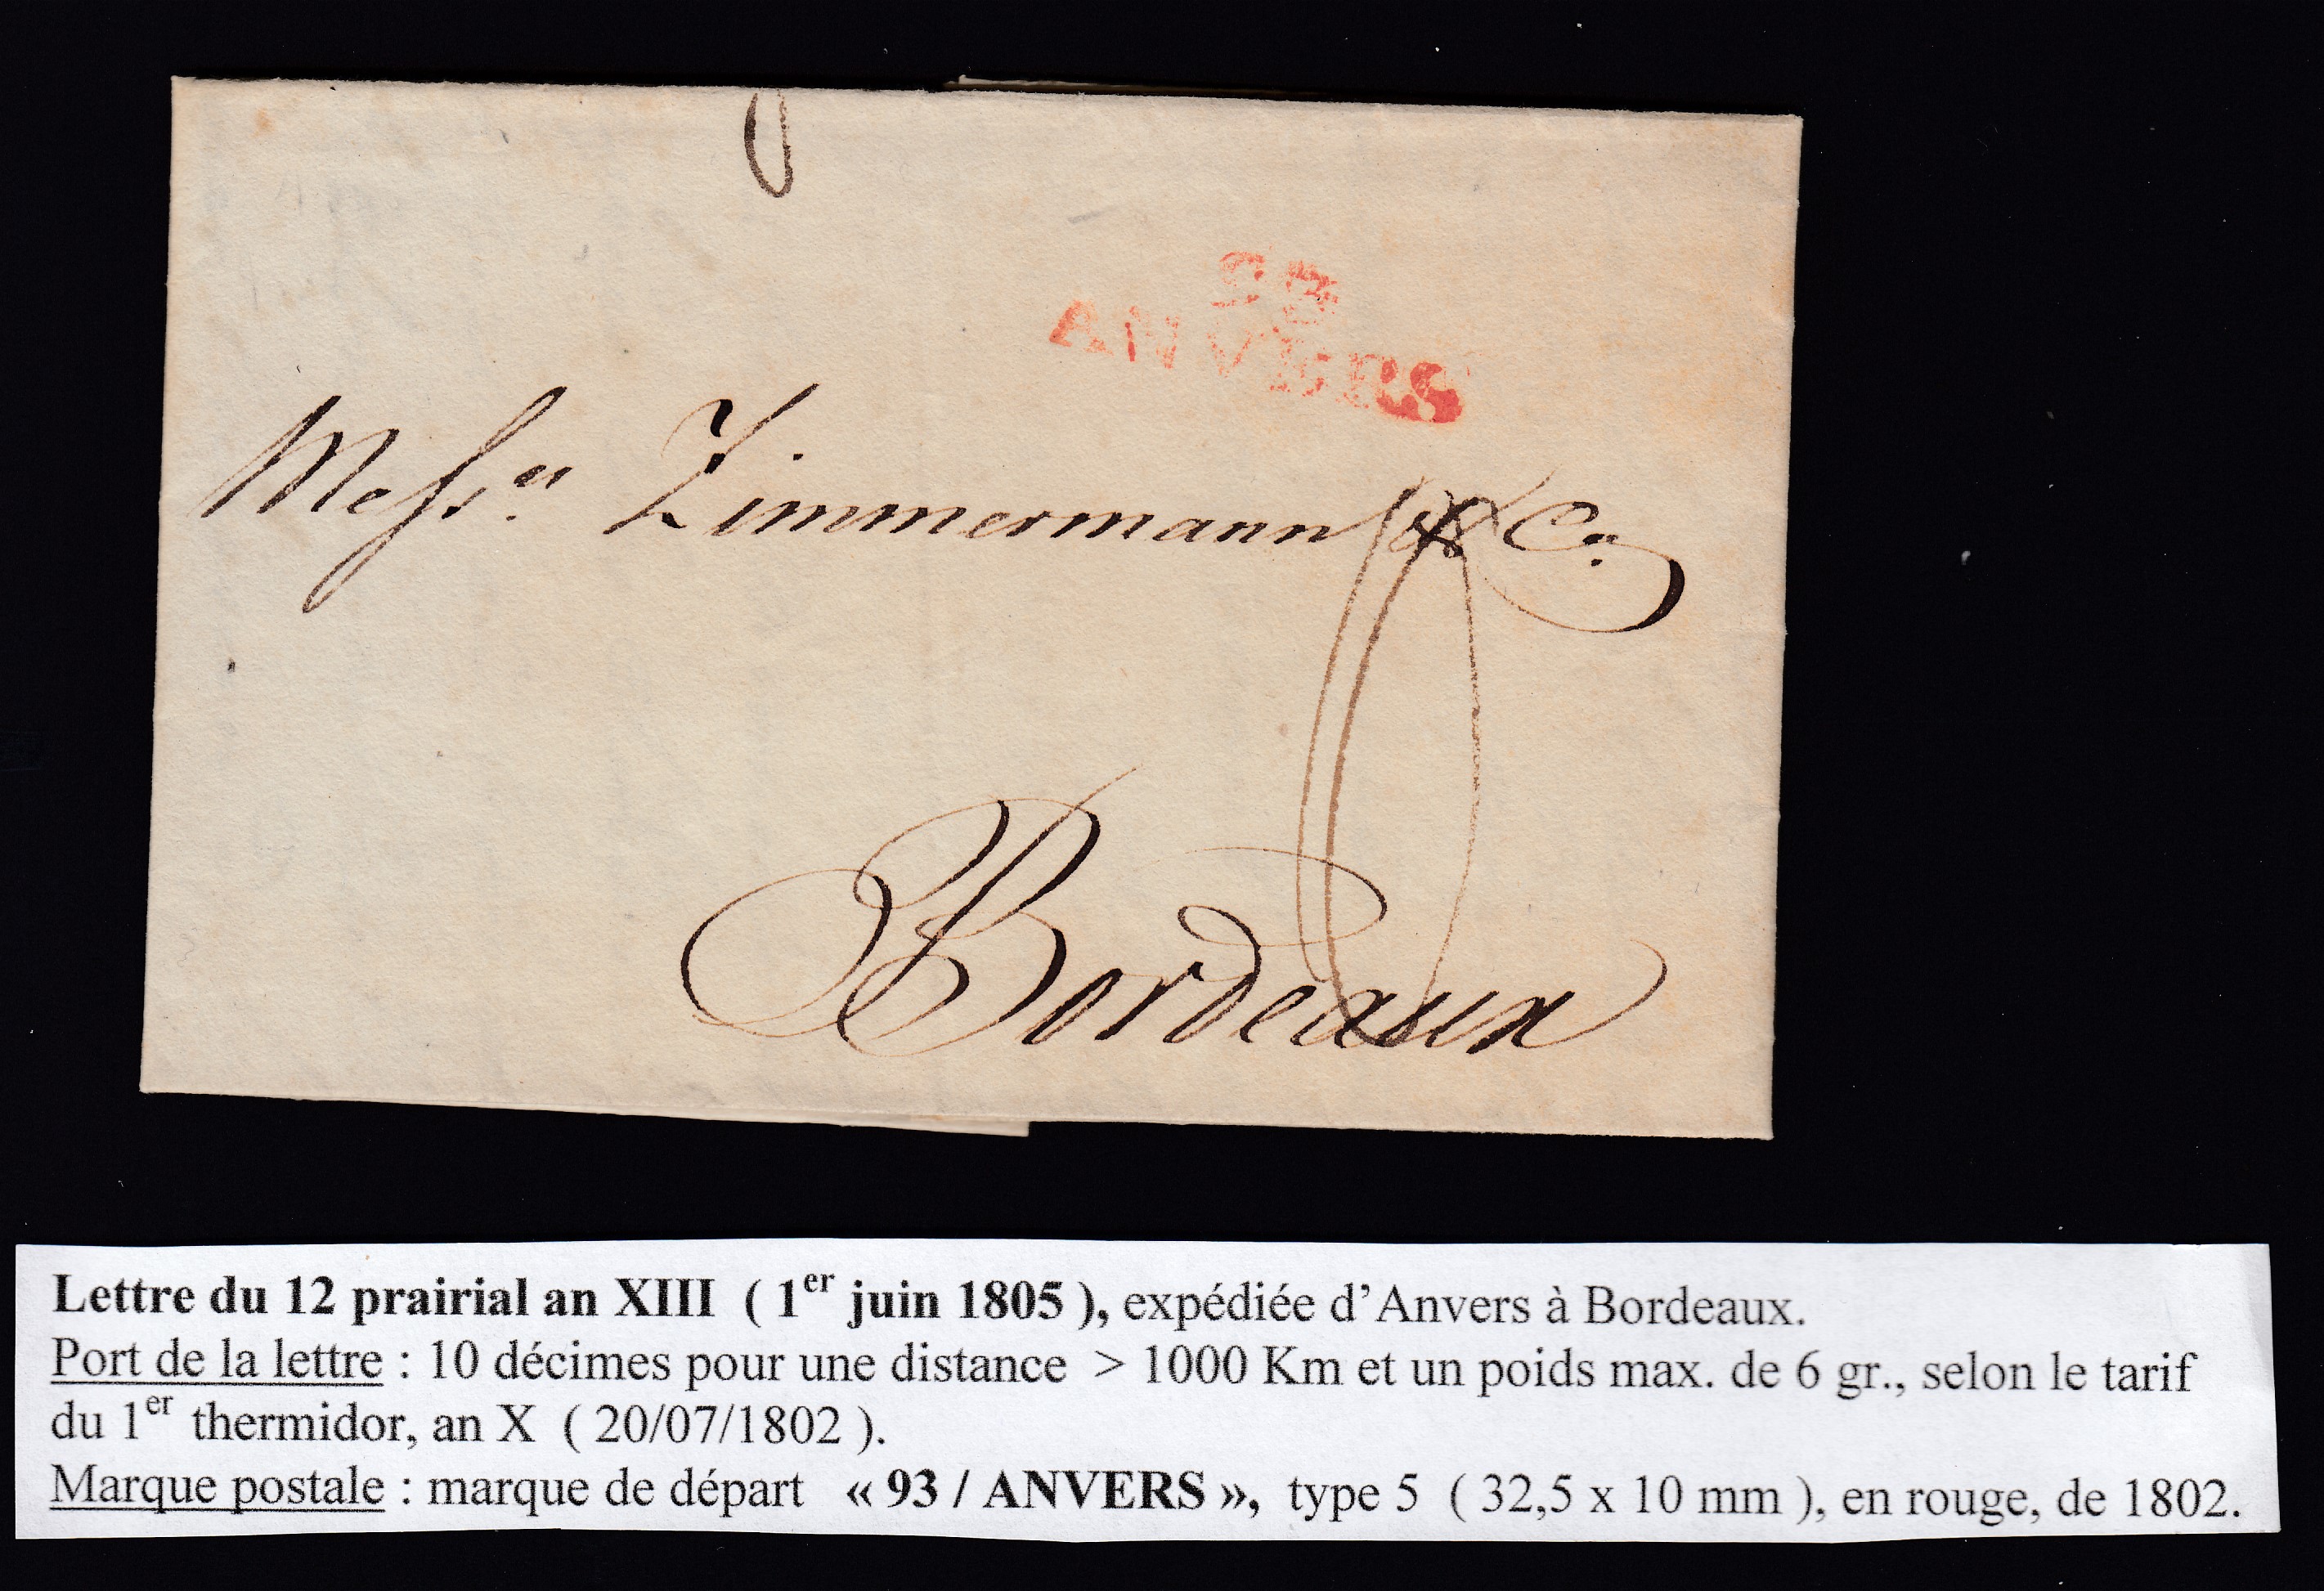 93
ANVERS
Messrs Zimmermann & Co
10
Bordeaux
Lettre du 12 prairial an XIII ( 1er juin 1805 ), expédiée d’Anvers à Bordeaux.
Port de la lettre : 10 décimes pour une distance > 1000 Km et un poids max. de 6 gr., selon le tarif
du 1er thermidor, an X ( 20/07/1802 ).
Marque postale : marque de départ « 93 / ANVERS », type 5 ( 32,5 x 10 mm ), en rouge, de 1802.